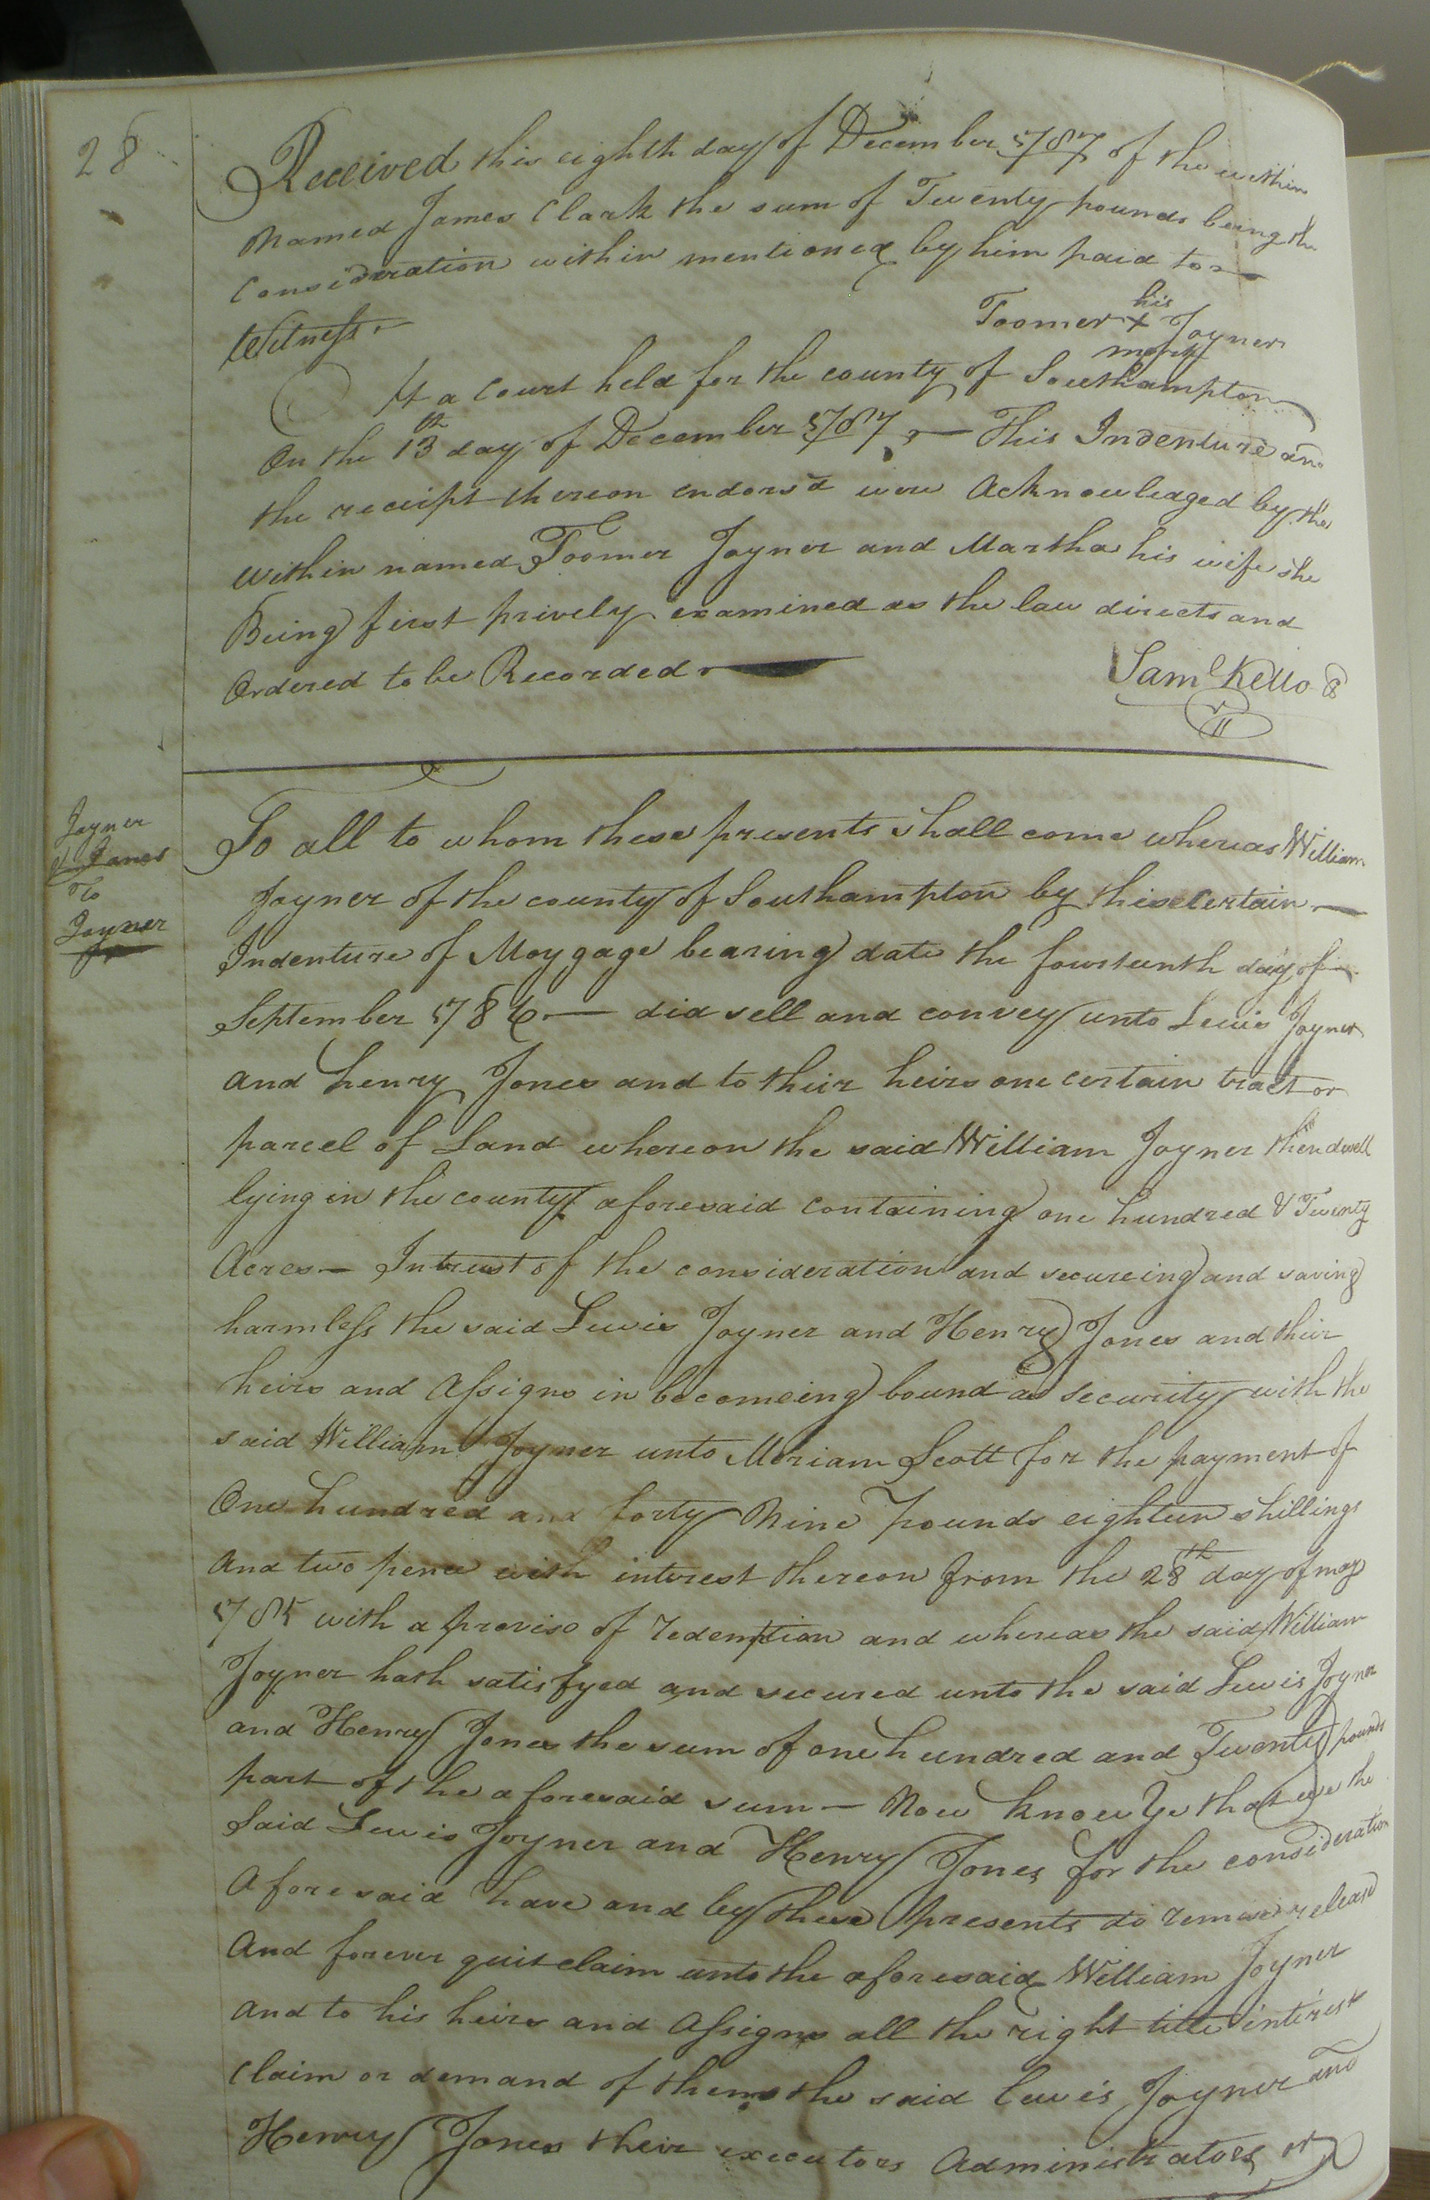 28
Received this eighth day of December 1787 of the within
Named James Clark the sum of Twenty pounds being the
Consideration within mentioned by him paid to
Witness
his
Toomer X Joyner
mark
At a Court held for the county of Southampton
On the 13th day of December 1787 — This Indenture and
the receipt thereon endors'd were Acknowledged by the
within named Toomer Joyner and Martha his wife she
Being first prively examined as the law directs and
Ordered to be Recorded
Saml Kello
Joyner
& Jones
To
Joyner
To all to whom these presents shall come whereas William
Joyner of the county of Southampton by this certain —
Indenture of Moygage bearing date the fourteenth day of
September 1786 — did sell and convey unto Lewis Joyner
and henry Jones and to their heirs one certain tract or
parcel of Land whereon the said William Joyner then dwell
lying in the county aforesaid containing one hundred & Twenty
Acres — Intrust of the consideration and secureing and saving
harmless the said Lewis Joyner and Henry Jones and their
heirs and Assigns in becomeing bound as security with the
said William Joyner unto Miriam Scott for the payment of
One hundred and forty Nine pounds eighteen shillings
And two pence with interest thereon from the 28th day of may
1785 with a proviso of redemption and whereas the said William
Joyner hath satisfyed and secured unto the said Lewis Joyner
and Henry Jones the sum of one hundred and Twenty pounds
part of the aforesaid sum — Now know Ye that we the
Said Lewis Joyner and Henry Jones for the consideration
Aforesaid have and by these presents do remise release
And forever quit claim unto the aforesaid William Joyner
and to his heirs and Assigns all the right title interest
Claim or demand of them the said Lewis Joyner and
Henry Jones their executors Administrators or